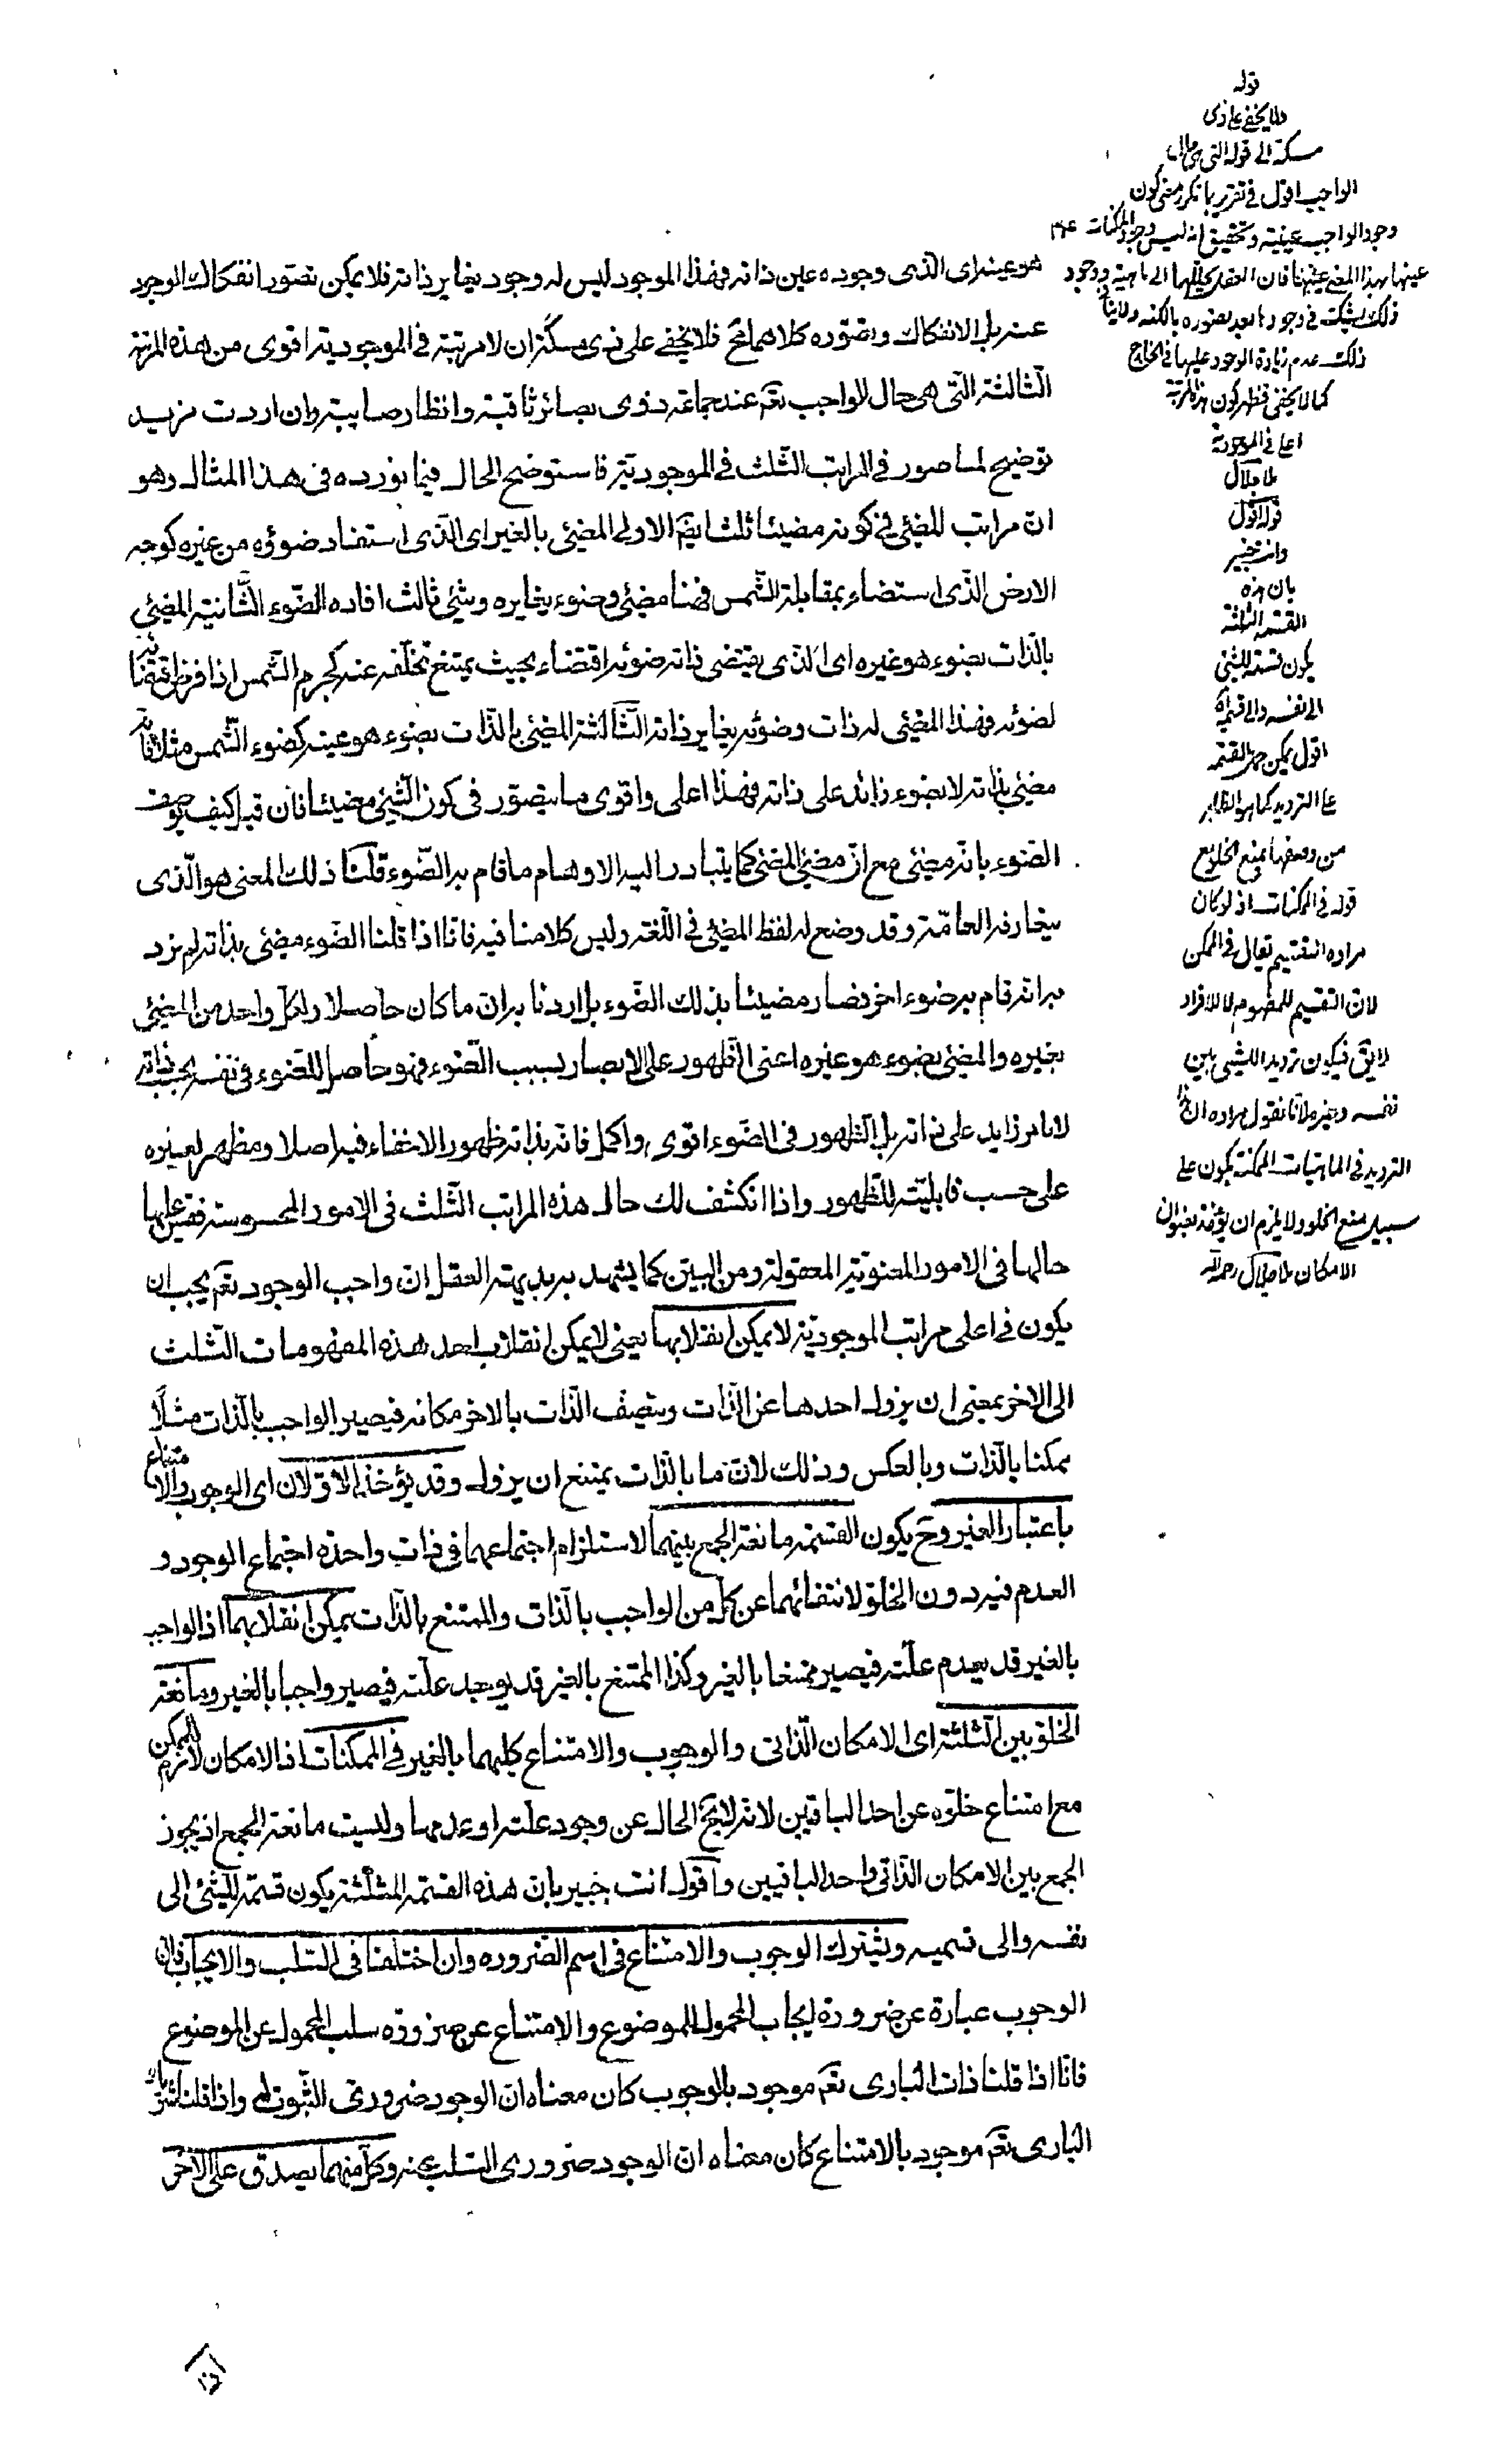 هو عينه اى الذى وجوده عين ذاته فهذا الموجود ليس له وجود يغاير ذاته فلا يمكن تصور انفكاك الوجود
عنه بل الانفكاك وتصوره كلاهما مح فلا يخفى على ذى مسكة ان لا مرتبة فى الموجودية اقوى من هذه المرتبة
الثالثة التى هى حال لواجب تعم عند جماعة ذوى بصائر ثاقبة وانظار صايبة وان اردت مزيد
توضيح لما صور فى المراتب الثلث فى الموجودية فاستوضح الحال فيما نورده فى هذا المثال وهو
ان مراتب المضئى فى كونه مضيئا ثلث ايضا الاولى المضئى بالغير اى الذى استفاد ضوؤه من غيره كوجه
الارض الذى استضاء بمقابلة الشمس فهنا مضئى وضوء يغايره وشئى ثالث افاده الضوء الثانية المضئى
بالذات بضوء هو غيره اى الذى يقتضى ذاته ضوئه اقتضاء بحيث يمتنع تخلفه عنه كجرم الشمس اذا فرض اقتضائه
لضوئه فهذا المضئى له ذات وضوئه يغاير ذاته الثالثة المضئى بالذات بضوء هو عينه كضوء الشمس مثلا فانه
مضئى بذاته لا بضوء زائد على ذاته فهذا اعلى واقوى ما يتصور فى كون الشئى مضيئا فان قيل كيف يوصف
الضوء بانه مضئى مع ان مضئى المضئى كما يتبادر اليه الاوهام ما قام به الضوء قلنا ذلك المعنى هو الذى
يتعارفه العامة وقد وضع له لفظ المضئى فى اللغة وليس كلامنا فيه فانا اذا قلنا الضوء مضئى بذاته لم نرد
به انه قام به ضوء اخر فصار مضيئا بذلك الضوء بل اردنا به ان ما كان حاصلا لكل واحد من المضئى
بغيره والمضئى بضوء هو غيره اعنى الظهور على الابصار بسبب الضوء فهو حاصل للضوء فى نفسه بحسب ذاته
لا بامر زايد على ذاته بل الظهور فى الضوء اقوى واكمل فانه بذاته ظهور لا خفاء فيه اصلا ومظهر لغيره
على حسب قابليته للظهور واذا انكشف لك حال هذه المراتب الثلث فى الامور المحسوسة فقس عليها
حالها فى الامور المعنوية المعقولة ومن البين كما يشهد به بديهة العقل ان واجب الوجود تعم يجب ان
يكون فى اعلى مراتب الموجودية لا يمكن انقلابها يعنى لا يمكن انقلاب احد هذه المفهومات الثلث
الى الاخر بمعنى ان يزول احدها عن الذات ويتصف الذات بالاخر مكانه فيصير الواجب بالذات مثلا
ممكنا بالذات وبالعكس وذلك لان ما بالذات يمتنع ان يزول وقد يؤخذ الاولان اى الوجوب والامتناع
باعتبار الغير وح يكون القسمة مانعة الجمع بينهما لاستلزام اجتماعهما فى ذات واحدة اجتماع الوجود و
العدم فيه دون الخلو لانتفائهما عن كل من الواجب بالذات والممتنع بالذات يمكن انقلابهما اذ الواجب
بالغير قد يعدم علته فيصير ممتنعا بالغير وكذا الممتنع بالغير قد يوجد علته فيصير واجبا بالغير ومانعة
الخلو بين الثلثة اى الامكان الذاتى والوجوب والامتناع كليهما بالغير فى الممكنات اذ الامكان لازم للممكن
مع امتناع خلوه عن احد الباقين لانه لا يخ الحال عن وجود علته او عدمها وليست مانعة الجمع اذ يجوز
الجمع بين الامكان الذاتى واحد الباقيين واقول انت خبير بان هذه القسمة المثلثة يكون قسمة للشئى الى
نفسه والى قسميه ويشترك الوجوب والامتناع فى اسم الضرورة وان اختلفا فى السلب والايجاب فان
الوجوب عبارة عن ضرورة ايجاب المحمول للموضوع والامتناع عن ضرورة سلب المحمول عن الموضوع
فانا اذا قلنا ذات البارى تعم موجود بالوجوب كان معناه ان الوجود ضرورى الثبوت له واذا قلنا شريك
البارى تعم موجود بالامتناع كان معناه ان الوجود ضرورى السلب عنه وكل منهما يصدق على الاخر
قوله
فلا يخفى على ذى
مسكة الى قوله التى هى حال
الواجب اقول فى تقرير ما ذكر معنى كون
وجود الواجب عينه وتحقيق انه ليس وجود الممكنات
عينها بهذا المعنى عينها فان العقل يحللها الى ماهية ووجود
ذلك يشك فى وجودها بعد تصوره بالكنه ولا ينافى
ذلك عدم زيادة الوجود عليها فى الخارج
كما لا يخفى فظهر كون هذه المرتبة
اعلى فى الموجودية
ملا جلال
قوله اقول
وانت خبير
بان هذه
القسمة المثلثة
يكون قسمة للشئى
الى نفسه والى قسميه
اقول يمكن حمل القسمة
على الترديد كما هو الظاهر
من وصفها بمنع الخلو مع
قوله فى الممكنات اذ لو كان
مراده التقسيم لقال فى الممكن
لان التقسيم للمفهوم لا للافراد
لا يق فيكون ترديد الشئى بين
نفسه وغيره لانا نقول مراده ان هذا
الترديد فى الماهيات الممكنة يكون على
سبيل منع الخلو ولا يلزم ان يؤخذ بعنوان
الامكان ملا جلال رحمه الله